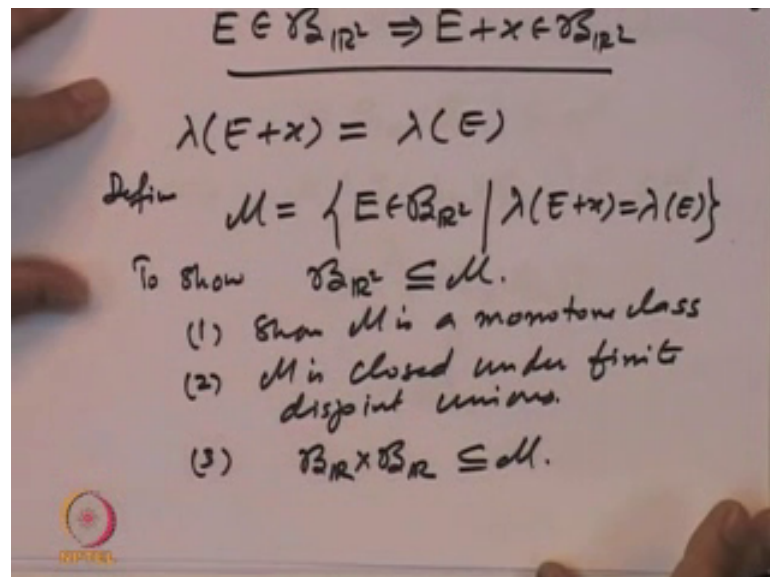 E ∈ 𝔅_{ℝ²} ⇒ E + x ∈ 𝔅_{ℝ²}
λ(E + x) = λ(E)
Defin M = { E ∈ 𝔅_{ℝ²} | λ(E + x) = λ(E) }
To show 𝔅_{ℝ²} ⊆ M.
(1) Show M is a monotone class
(2) M is closed under finite
disjoint unions.
(3) 𝔅_{ℝ} × 𝔅_{ℝ} ⊆ M.
NPTEL